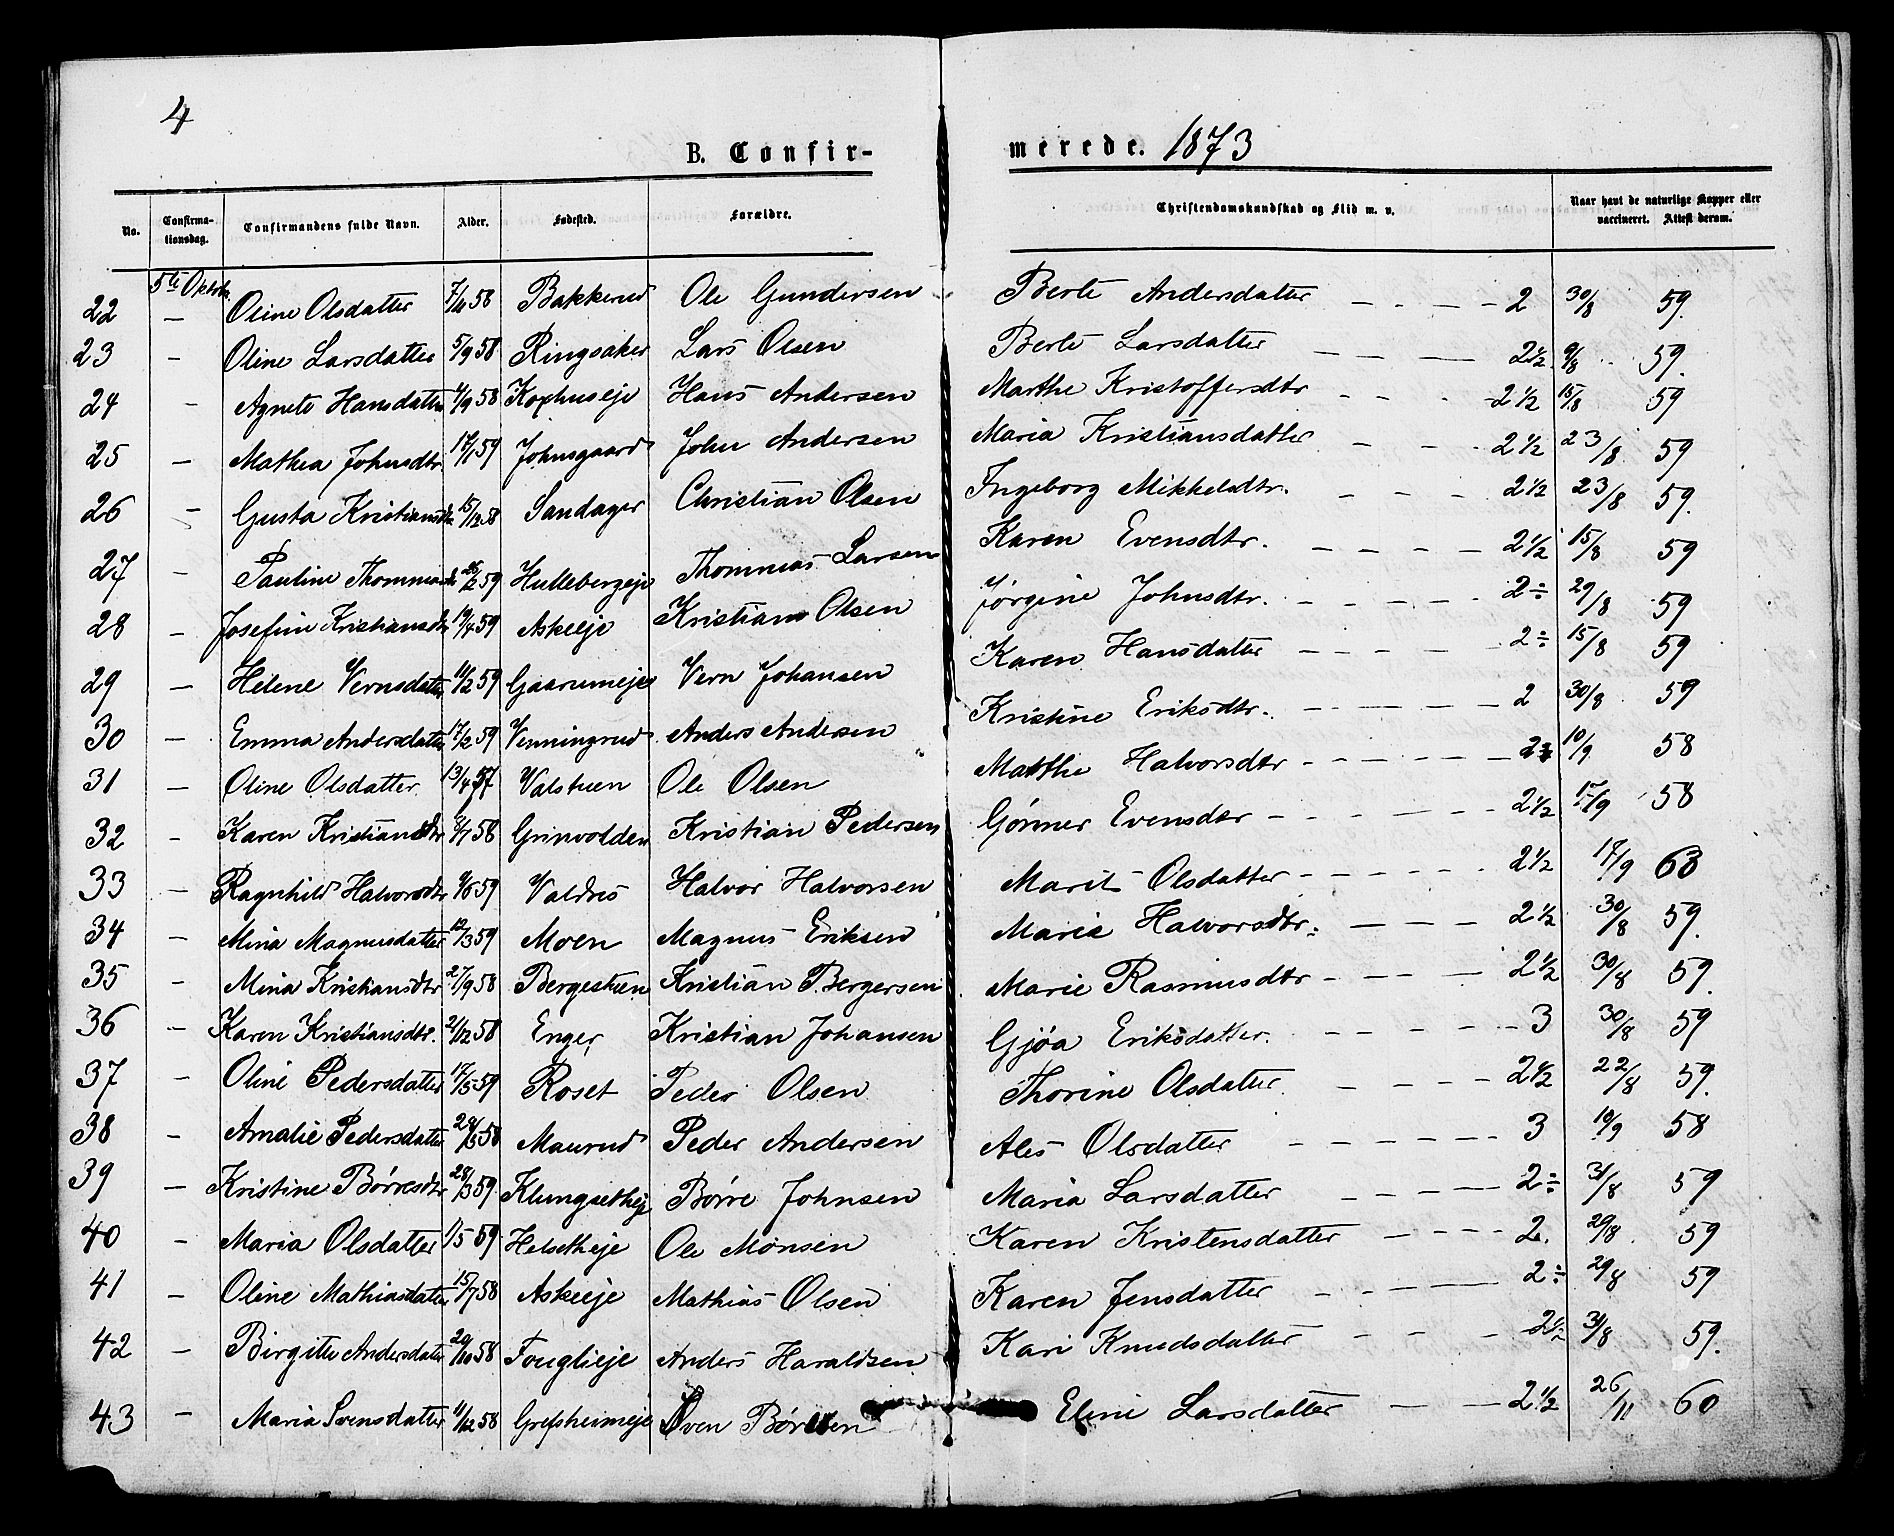 4
B. Confir-merede. 1873
No. Confirma-tionsdag. Confirmandens fulde Navn. Alder. Fødested. Forældre. Christendomskundskab og Flid m. v. Naar havt de naturlige Kopper eller vaccineret. Attest derom.
5te Oktobr
22 — Oline Olsdatter 7/11 58 Bakkerud Ole Gundersen Berte Andersdatter — — — — 2 30/8 59.
23 — Oline Larsdatter 5/9 58 Ringsaker Lars Olsen Berte Larsdatter — — — — 2½ 9/8 59.
24 — Agnete Hansdatter 4/9 58 Kophuseje Hans Andersen Marthe Kristoffersdtr — — — 2½ 15/8 59
25 — Mathea Johnsdtr. 17/1 59 Johnsgaard John Andersen Maria Kristiansdatter — — — 2½ 23/8 59
26 — Gusta Kristiansdtr 15/12 58 Sandager Christian Olsen Ingeborg Mikkelsdtr. — — — 2½ 23/8 59.
27 — Pauline Thommasdtr 26/2 59 Hullebergeje Thommas Larsen Karen Evensdtr. — — — — 2½ 15/8 59
28 — Josefine Kristiansdtr 19/4 59 Askeeje Kristian Olsen Jørgine Johnsdtr. — — — — 2÷ 29/8 59
29 — Helene Vernsdatter 11/2 59 Gaarumeje Vern Johansen Karen Hansdatter — — — — 2÷ 15/8 59
30 — Emma Andersdatter 17/2 59 Venningrud Anders Andersen Kristine Eriksdtr. — — — — 2 30/8 59
31 — Oline Olsdatter 13/4 57 Valstuen Ole Olsen Marthe Halvorsdtr — — — — 10/9 58
32 — Karen Kristiansdtr 58 Grinvolden Kristian Pedersen Gønner Evensdtr — — — — 2½ 17/9 58
33 — Ragnhild Halvorsdtr 9/6 59 Valdres Halvor Halvorsen Marit Olsdatter — — — — 2½ 17/9 63
34 — Mina Magnusdatter 12/3 59 Moen Magnus Eriksen Marie Halvorsdtr. — — — 2½ 30/8 59.
35 — Mina Kristiansdtr 27/9 58 Bergestuen Kristian P. Bergersen Marie Rasmusdtr — — — 2½ 30/8 59.
36 — Karen Kristiansdtr. 21/12 58 Enger Kristian Johansen Gjøa Eriksdatter. — — — — 3 30/8 59
37 — Oline Pedersdatter 17/5 59 Roset Peder Olsen Thorine Olsdatter — — — — 2½ 22/8 59.
38 — Amalie Pedersdatter 28/5 58 Maurud Peder Andersen Ales Olsdatter — — — — 3 10/9 58
39 — Kristine Børresdtr 28/3 59. Klungsetheje Børre Johnsen Maria Larsdatter — — — — 2÷ 31/8 59
40 — Maria Olsdatter 1/5 59 Helsetheje Ole Monsen Karen Kristensdatter — — — — 2. 29/8 59
41 — Oline Mathiasdatter 15/7 58 Askeeje Mathias Olsen Karen Jensdatter — — — — 2÷ 29/8 59
42 — Birgitte Andersdatter 20/10 58 Fouglieje Anders Haraldsen Kari Knudsdatter — — — 2½ 31/8 59.
43 — Maria Svensdatter 11/12 58 Grefsheimeje Sven Børesen Eline Larsdatter — — 2½ 26/11 60